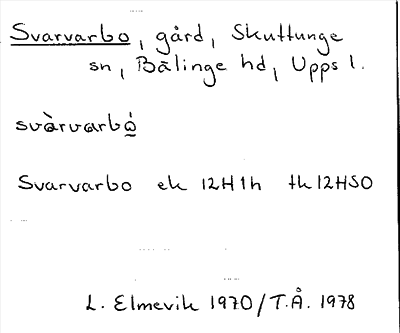 Svarvarbo, gård, Skuttunge
sn, Bälinge hd, Upps l.
svàrvarbó̲
Svarvarbo ek 12H1h tk12HSO
L. Elmevik 1970/T.Å. 1978